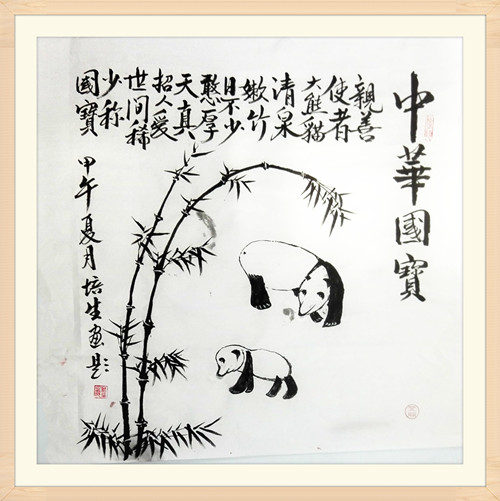 中華國寶
親善
使者
大熊貓
清泉
嫩竹
日不少
憨厚
天真
招人愛
世间稀
少称
國寶
甲午夏月培生画题